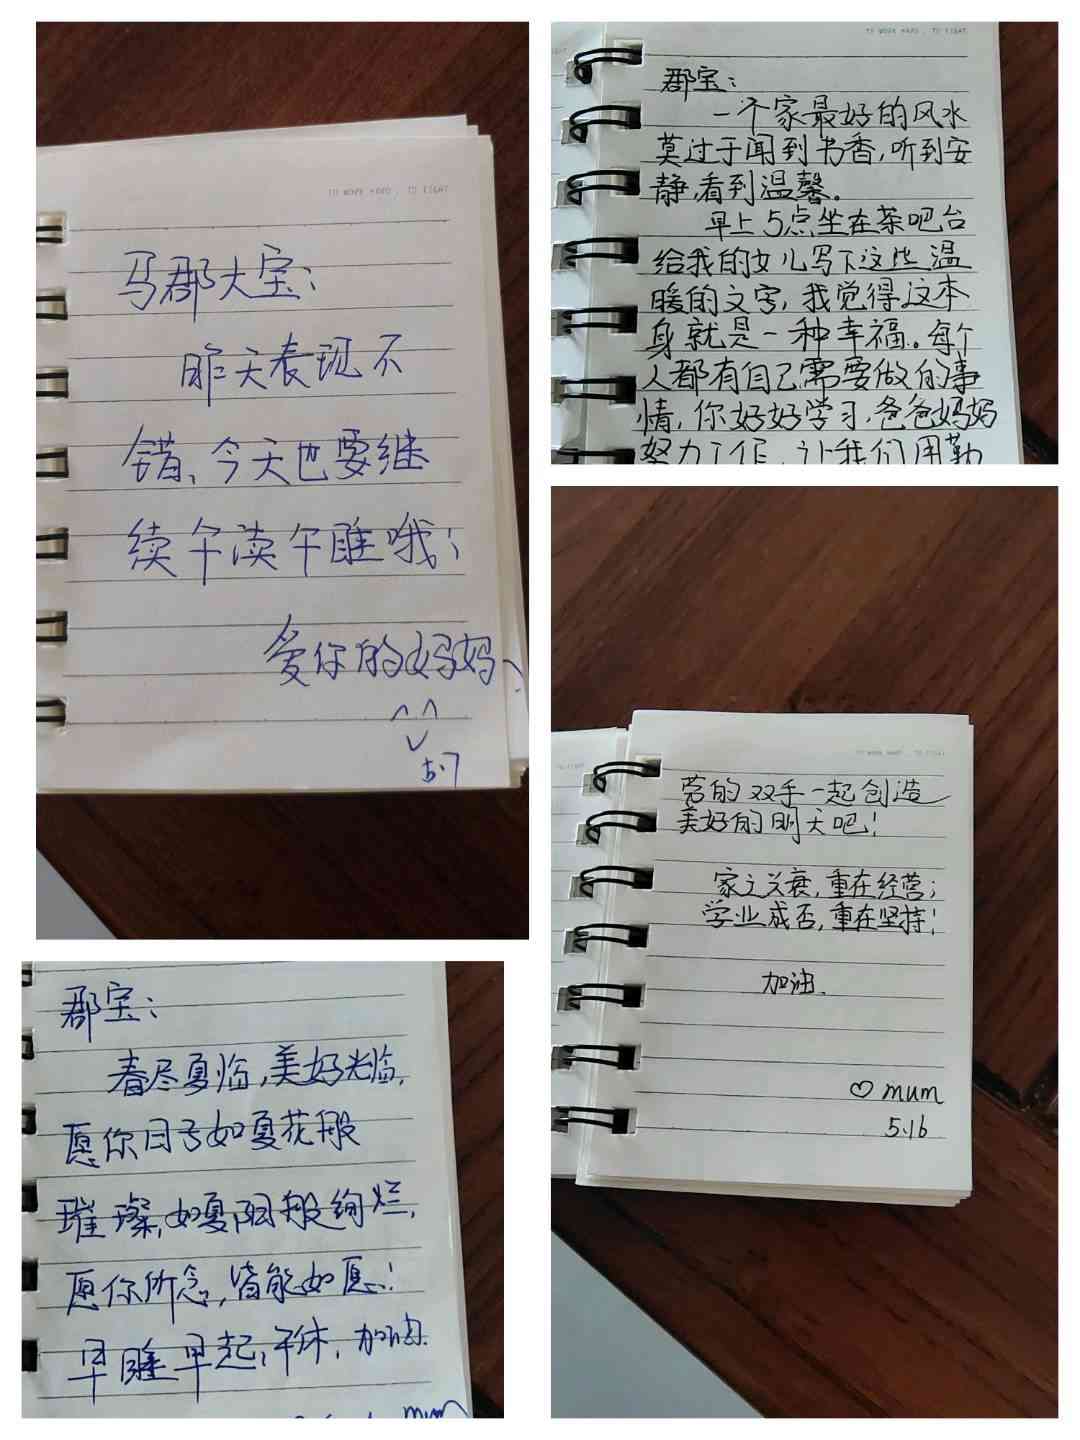 TO WORK HARD , TO EIGHT
马郡大宝：
昨天表现不
错、今天也要继
续午读午睡哦！
爱你的妈妈、
5.7
郡宝：
一个家最好的风水
莫过于闻到书香，听到安
静，看到温馨。
早上5点坐在茶吧台
给我的女儿写下这些温
暖的文字，我觉得这本
身就是一种幸福。每个
人都有自己需要做的事
情，你好好学习，爸爸妈妈
努力工作，让我们用勤
劳的双手一起创造
美好的明天吧！
家之兴衰，重在经营；
学业成否，重在坚持！
加油.
♡ mum
5.16
郡宝：
春尽夏临，美好光临，
愿你日子如夏花般
璀璨，如夏阳般绚烂，
愿你所念，皆能如愿！
早睡早起，午休，加油.
mum